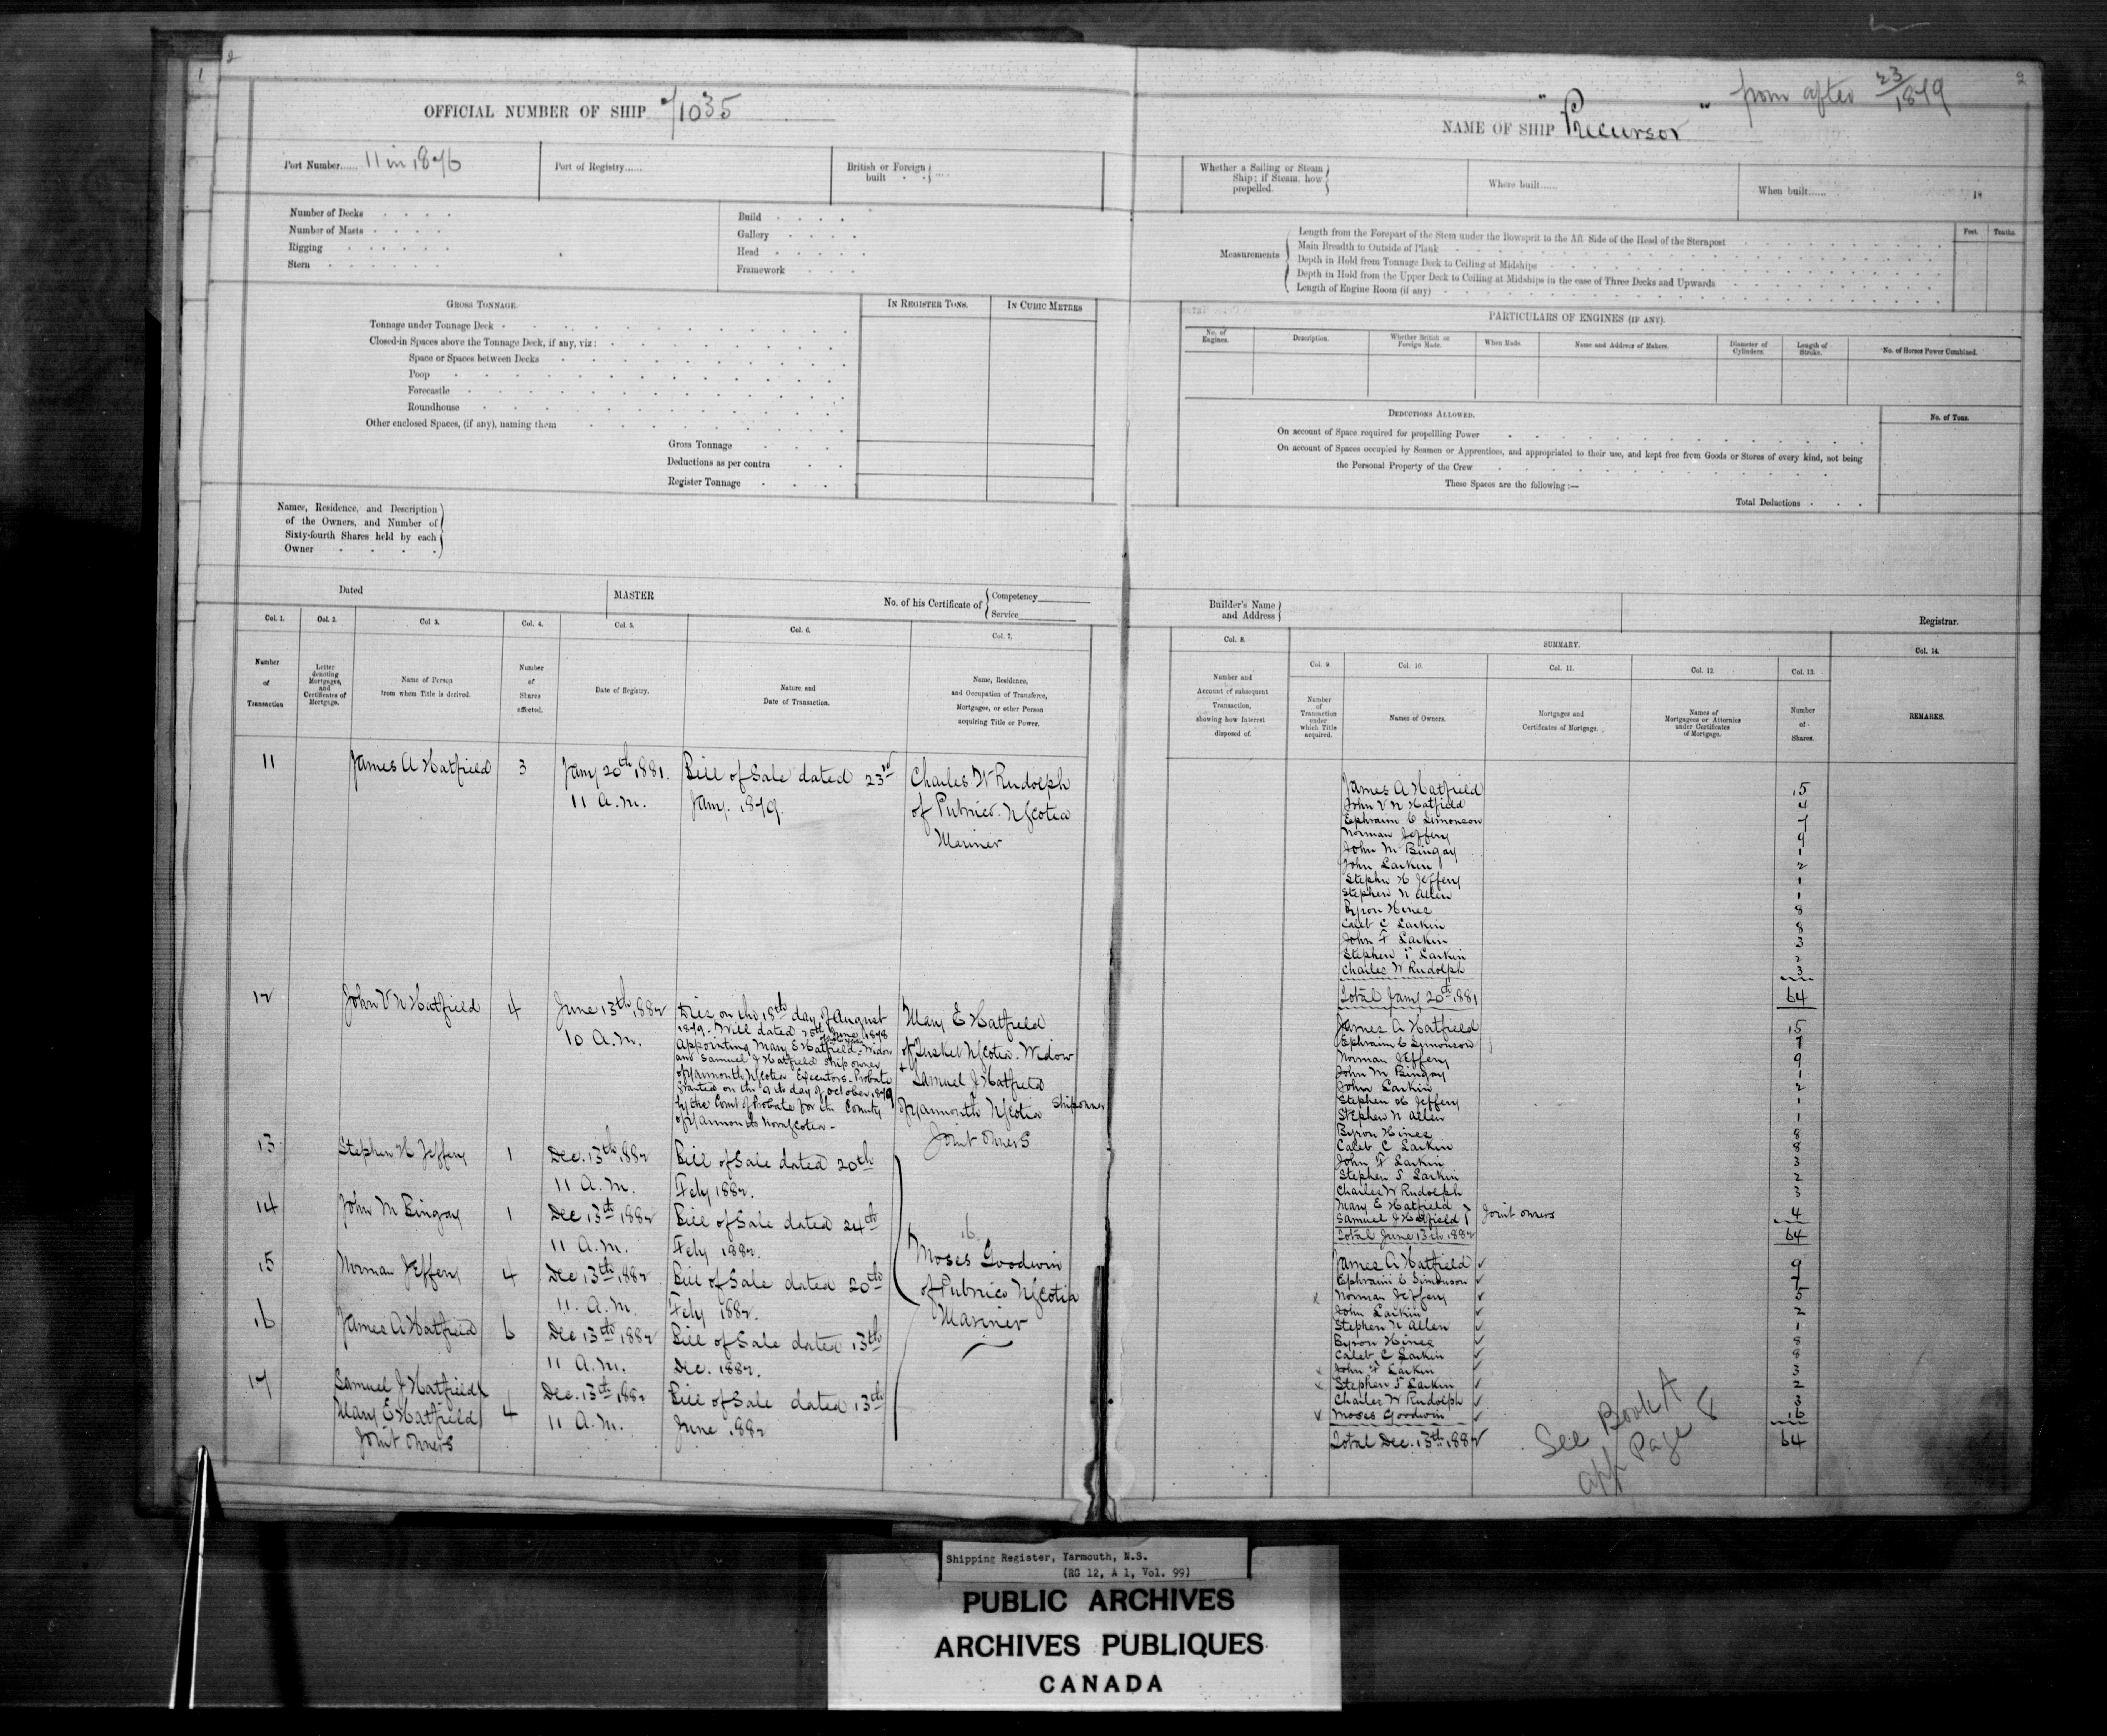 2
1
OFFICIAL NUMBER OF SHIP 71035
Port Number...... 11 in 1876
Port of Registry......
British or Foreign built
Number of Decks
Number of Masts
Rigging
Stern
Build
Gallery
Head
Framework
GROSS TONNAGE.
IN REGISTER TONS.
IN CUBIC METRES
Tonnage under Tonnage Deck
Closed-in Spaces above the Tonnage Deck, if any, viz:
Space or Spaces between Decks
Poop
Forecastle
Roundhouse
Other enclosed Spaces, (if any), naming them
Gross Tonnage
Deductions as per contra
Register Tonnage
Names, Residence, and Description
of the Owners, and Number of
Sixty-fourth Shares held by each
Owner
Dated
MASTER
No. of his Certificate of
Competency
Service
Col. 1.
Col. 2.
Col 3.
Col. 4.
Col. 5.
Col. 6.
Col. 7.
Number of Transaction
Letter denoting Mortgages, and Certificates of Mortgage.
Name of Person from whom Title is derived.
Number of Shares affected.
Date of Registry.
Nature and Date of Transaction.
Name, Residence, and Occupation of Transferee, Mortgagee, or other Person acquiring Title or Power.
11 James A Hatfield 3 Jany 20th 1881. Bill of Sale dated 23rd Charles W Rudolph
11 A.M. Jany. 1879. of Pubnico. N Scotia
Mariner
12 John V N Hatfield 4 June 13th 1882 Died on the 18th day of August Mary E Hatfield
10 A.M. 1879 - Will dated 25th June 1878
Appointing Mary E Hatfield - Widow of Tusket N Scotia. Widow
and Samuel J Hatfield Ship owner +
of Yarmouth N Scotia Executors - Probate Samuel J Hatfield
Granted on the 9th day of October 1879
by the Court of Probate for the County of Yarmouth N Scotia Shipowner
of Yarmouth Nova Scotia - Joint Owners
13 Stephen H Jeffery 1 Dec. 13th 1882 Bill of Sale dated 20th
11 A.M. Feby 1882.
14 John M Bingay 1 Dec 13th 1882 Bill of Sale dated 24th
11 A.M. Feby 1882.
16
Moses Goodwin
15 Norman Jeffery 4 Dec 13th 1882 Bill of Sale dated 20th of Pubnico N Scotia
11. A.M. Feby 1882. Mariner
16 James A Hatfield 6 Dec 13th 1882 Bill of Sale dated 13th
11 A.M. Dec. 1882.
17 Samuel J Hatfield
Mary E Hatfield 4 Dec. 13th 1882 Bill of Sale dated 13th
Joint Owners 11 A.M. June 1882
2
from after 23/1879
NAME OF SHIP "Precursor"
Whether a Sailing or Steam
Ship; if Steam, how
propelled.
Where built......
When built...... 18
Measurements
Length from the Forepart of the Stem under the Bowsprit to the Aft Side of the Head of the Sternpost
Main Breadth to Outside of Plank
Depth in Hold from Tonnage Deck to Ceiling at Midships
Depth in Hold from the Upper Deck to Ceiling at Midships in the case of Three Decks and Upwards
Length of Engine Room (if any)
Feet.
Tenths.
PARTICULARS OF ENGINES (IF ANY).
No. of Engines.
Description.
Whether British or Foreign Made.
When Made.
Name and Address of Makers.
Diameter of Cylinders.
Length of Stroke.
No. of Horses Power Combined.
DEDUCTIONS ALLOWED.
No. of Tons.
On account of Space required for propellling Power
On account of Spaces occupied by Seamen or Apprentices, and appropriated to their use, and kept free from Goods or Stores of every kind, not being
the Personal Property of the Crew
These Spaces are the following :—
Total Deductions
Builder's Name
and Address
Registrar.
Col. 8.
SUMMARY.
Col. 14.
Col. 9.
Col. 10.
Col. 11.
Col. 12.
Col. 13.
Number and Account of subsequent Transaction, showing how Interest disposed of.
Number of Transaction under which Title acquired.
Names of Owners.
Mortgages and Certificates of Mortgage.
Names of Mortgagees or Attornies under Certificates of Mortgage.
Number of Shares.
REMARKS.
James A Hatfield 15
John V N Hatfield 4
Ephraim C Simonson 7
Norman Jeffery 9
John M Bingay 1
John Larkin 2
Stephen H Jeffery 1
Stephen N Allen 1
Byron Hines 8
Caleb C Larkin 8
John F Larkin 3
Stephen F Larkin 2
Charles W Rudolph 3
Total Jany 20th 1881 64
James A Hatfield 15
Ephraim C Simonson 7
Norman Jeffery 9
John M Bingay 1
John Larkin 2
Stephen H Jeffery 1
Stephen N Allen 1
Byron Hines 8
Caleb C Larkin 8
John F Larkin 3
Stephen F Larkin 2
Charles W Rudolph 3
Mary E Hatfield
Samuel J Hatfield } Joint owners 4
Total June 13th 1882 64
James A Hatfield ✓ 9
Ephraim C Simonson ✓ 7
x Norman Jeffery ✓ 5
John Larkin ✓ 2
Stephen N Allen ✓ 1
Byron Hines ✓ 8
Caleb C Larkin ✓ 8
x John F Larkin ✓ 3
x Stephen F Larkin ✓ 2
Charles W Rudolph ✓ 3
x Moses Goodwin ✓ 16
Total Dec. 13th 1882 64
See Book A
app Page 8
Shipping Register, Yarmouth, N.S.
(RG 12, A 1, Vol. 99)
PUBLIC ARCHIVES
ARCHIVES PUBLIQUES
CANADA